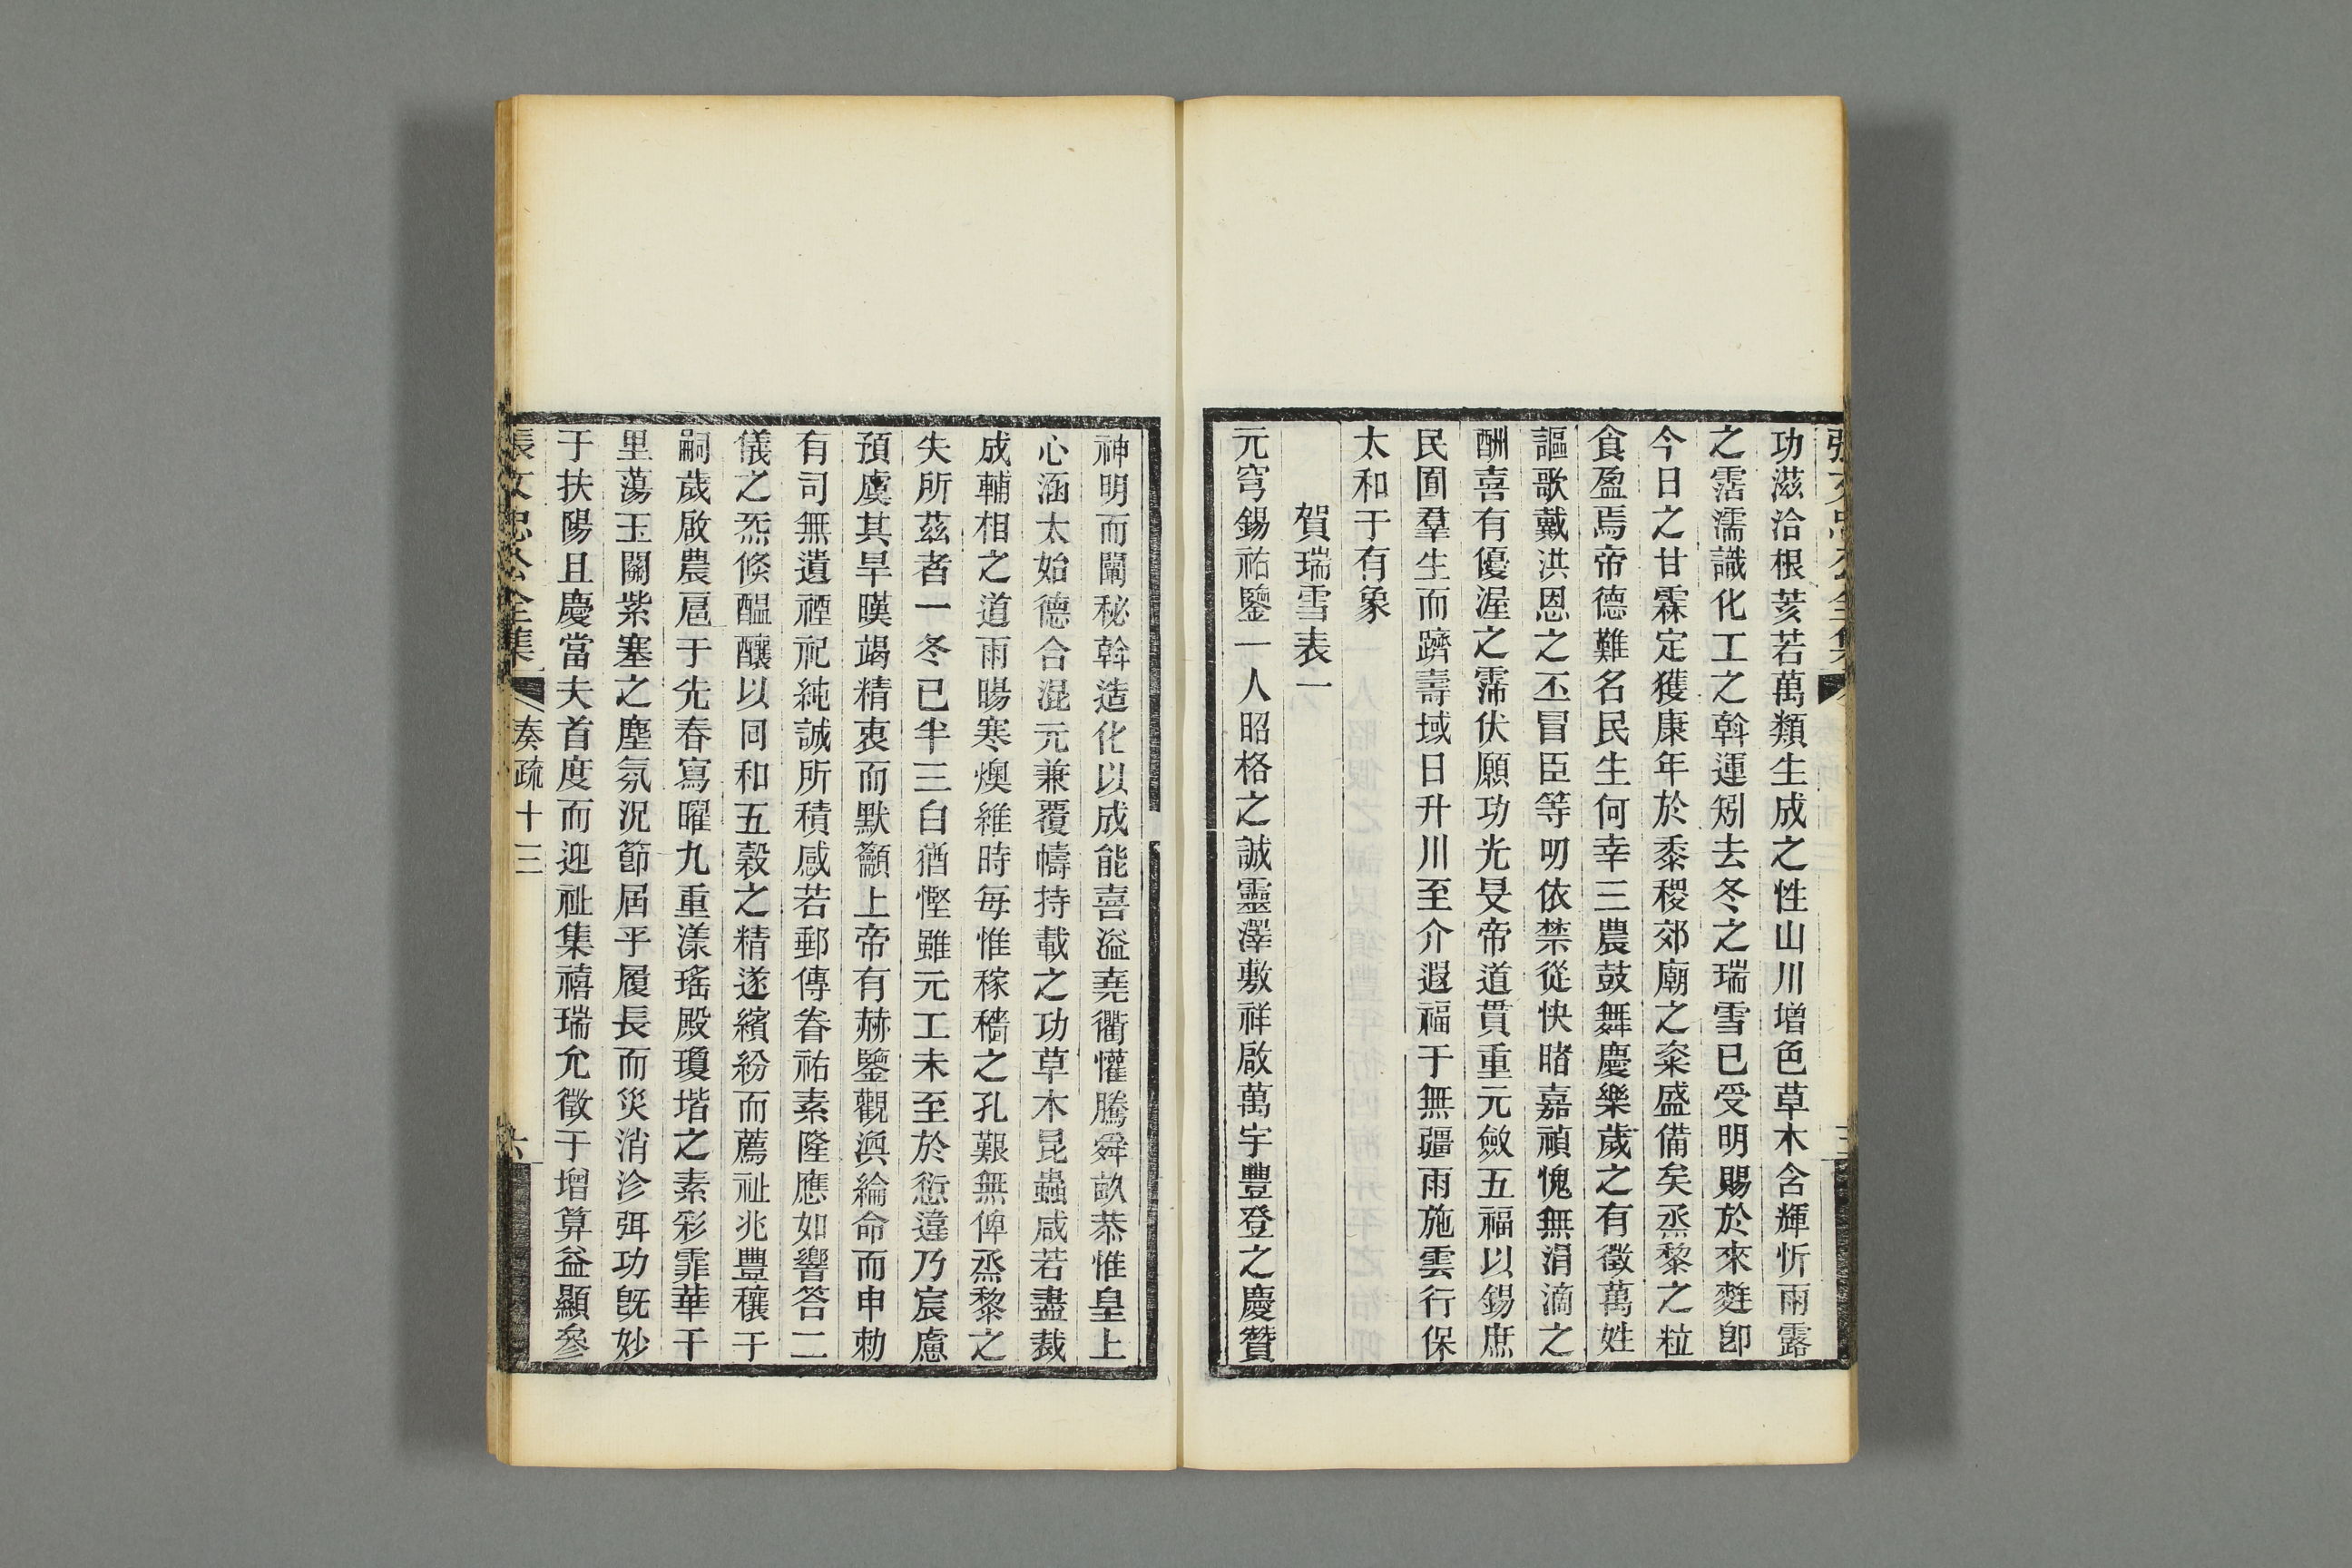 功滋洽根荄若萬類生成之性山川增色草木含輝忻雨露
之霑濡識化工之斡運矧去冬之瑞雪已受明賜於來麰卽
今日之甘霖定獲康年於黍稷郊廟之粢盛備矣烝黎之粒
食盈焉帝德難名民生何幸三農鼓舞慶樂歲之有徵萬姓
謳歌戴洪恩之丕冒臣等叨依禁從快睹嘉禎愧無涓滴之
酬喜有優渥之霈伏願功光旻帝道貫重元斂五福以錫庶
民囿羣生而躋壽域日升川至介遐福于無疆雨施雲行保
太和于有象
賀瑞雪表一
元穹錫祐鑒一人昭格之誠靈澤敷祥啟萬宇豐登之慶贊
神明而闡秘斡造化以成能喜溢堯衢懽騰舜畝恭惟皇上
心涵太始德合混元兼覆幬持載之功草木昆蟲咸若盡裁
成輔相之道雨暘寒燠維時每惟稼穡之孔艱無俾烝黎之
失所茲者一冬已半三白猶慳雖元工未至於愆違乃宸慮
預虞其旱暵竭精衷而默籲上帝有赫鑒觀渙綸命而申勅
有司無遺禋祀純誠所積感若郵傳眷祐素隆應如響答二
儀之炁倏醞釀以同和五穀之精遂繽紛而薦祉兆豐穰于
嗣歲啟農扈于先春寫曜九重漾瑤殿瓊堦之素彩霏華干
里蕩玉關紫塞之塵氛況節屆乎履長而災消沴弭功旣妙
于扶陽且慶當夫首度而迎祉集禧瑞允徵于增算益顯參
張文忠公全集 奏疏十三 六